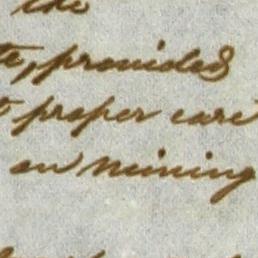 the
te, provided
t proper care
on mining